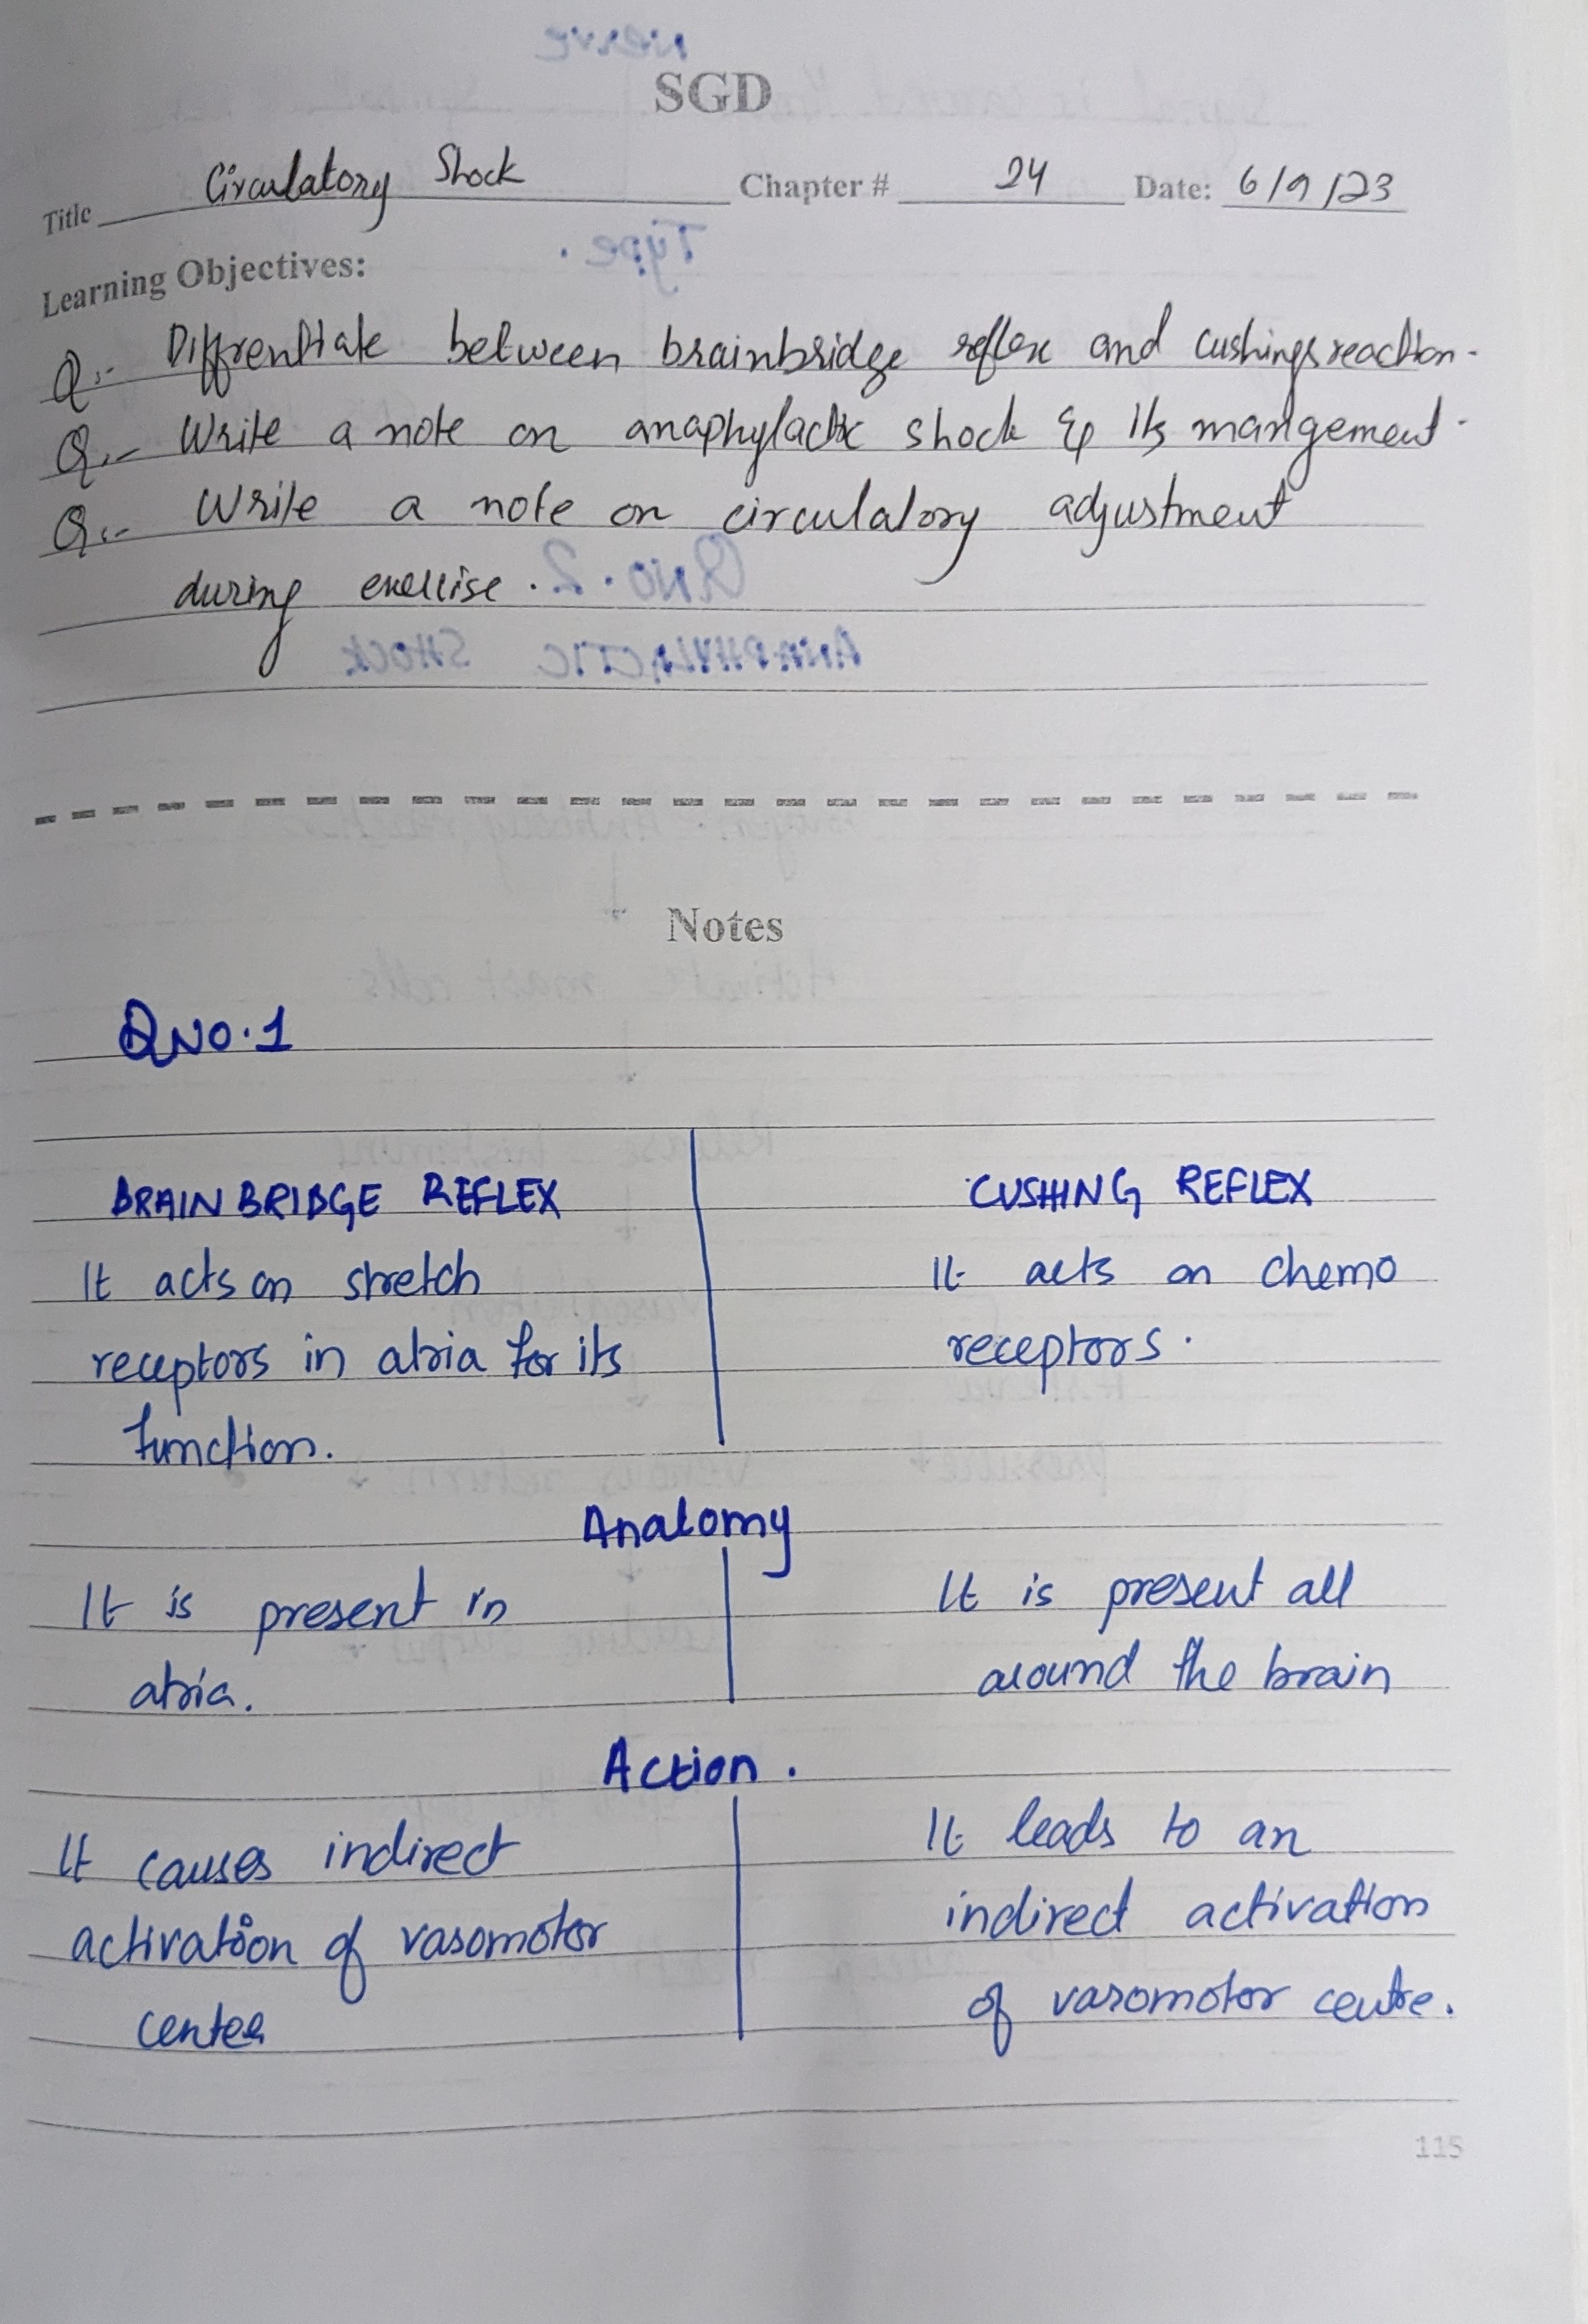 SGD
Title Circulatory Shock Chapter # 24 Date: 6/9/23
Learning Objectives:
Q:- Diffrentiate between brainbridge reflex and cushings reaction.
Q:- Write a note on anaphylactic shock & its mangement.
Q:- Write a note on circulatory adjustment
during exercise.
Notes
QNO.1
BRAINBRIDGE REFLEX
It acts on stretch
receptors in atria for its
function.
CUSHING REFLEX
It acts on chemo
receptors.
Anatomy
It is present in
atria.
It is present all
around the brain
Action.
It causes indirect
activation of vasomotor
center
It leads to an
indirect activation
of vasomotor centre.
115